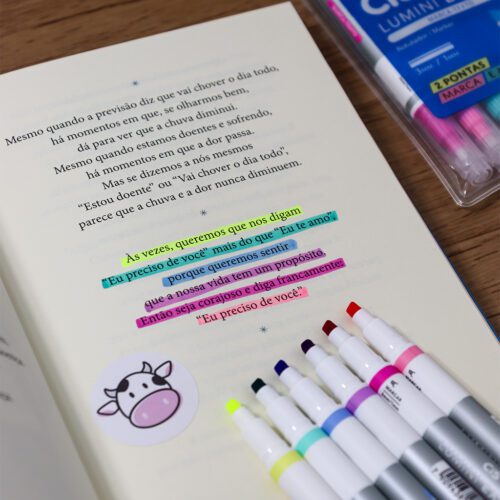 LUMINI
MARCA TEXTO
2 PONTAS
MARCA
Mesmo quando a previsão diz que vai chover o dia todo,
há momentos em que, se olharmos bem,
dá para ver que a chuva diminui.
Mesmo quando estamos doentes e sofrendo,
há momentos em que a dor passa.
Mas se dizemos a nós mesmos
“Estou doente” ou “Vai chover o dia todo”,
parece que a chuva e a dor nunca diminuem.
Às vezes, queremos que nos digam
“Eu preciso de você” mais do que “Eu te amo”,
porque queremos sentir
que a nossa vida tem um propósito.
Então seja corajoso e diga francamente:
“Eu preciso de você”.